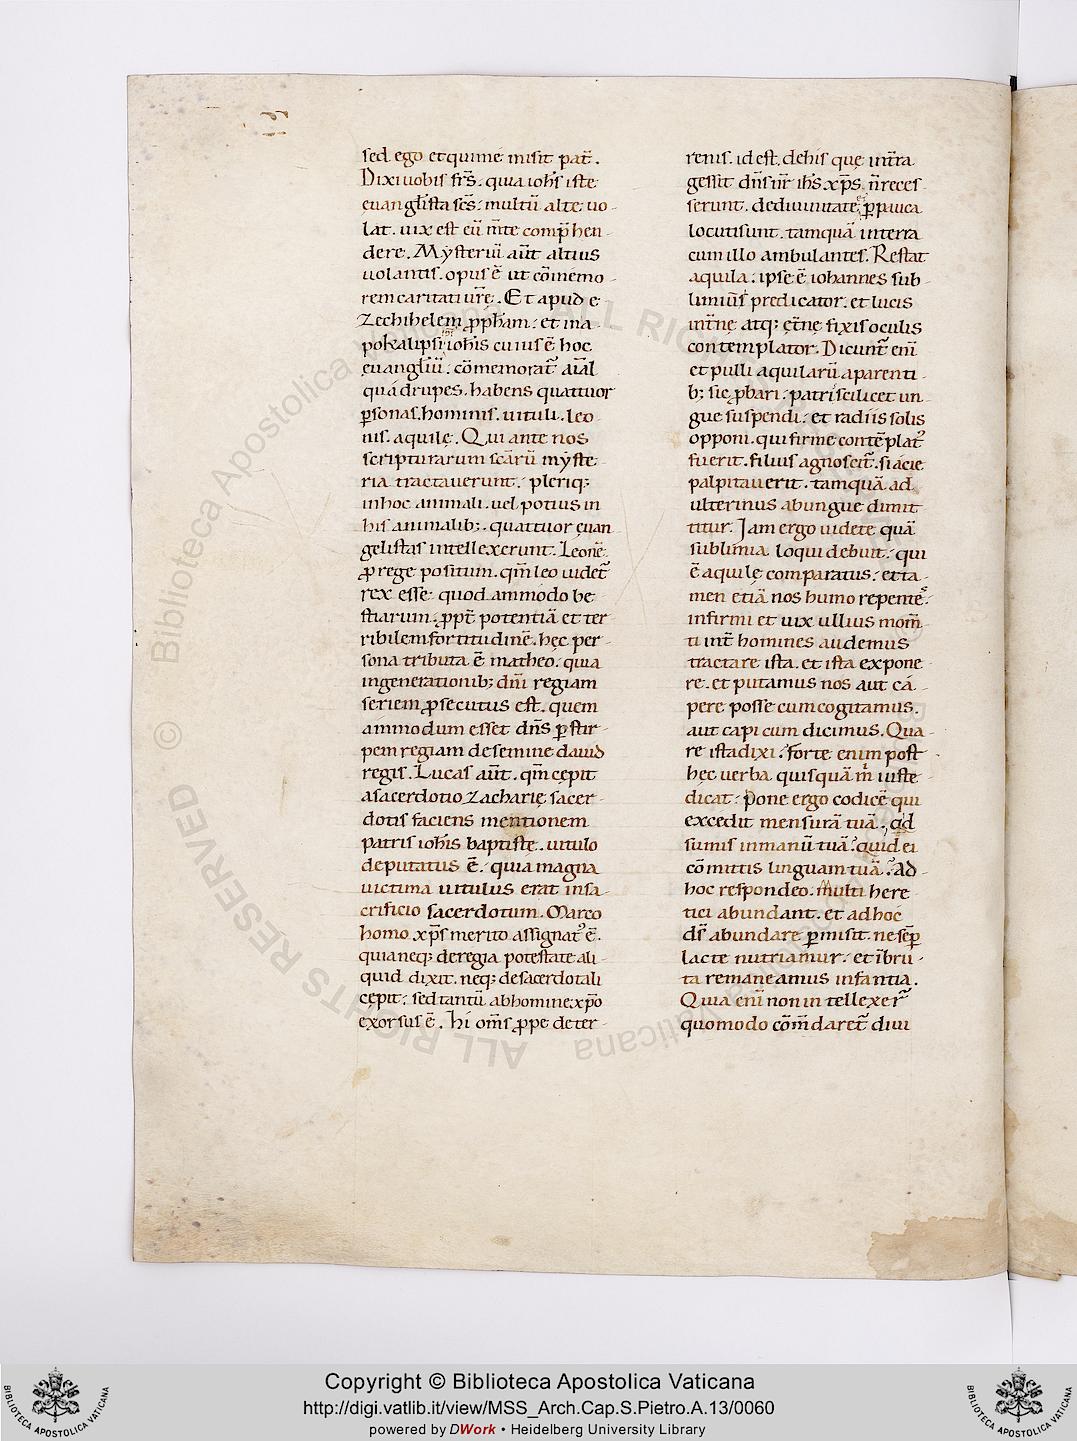 sed ego et qui me misit pat̅.
Dixi uobis frs̅. quia ioh̅s iste
ęuanglista sc̅s. multu̅ alte uo-
lat. uix est eu̅ m̅te comp̅hen-
dere. Mẏsteriu̅ aut̅ altius
uolantis. opus e̅ ut co̅memo-
rem caritati ur̅e. Et apud e
Zechihelem ꝓph̅am. et in a-
pokalipsi ioh̅is cuius e̅ hoc
ęuangliu̅. co̅memorat̅ ai̅al
quadrupes. habens quattuor
ꝑsonas. hominis. uituli. leo
nis. aquilę. Qui ante nos
scripturarum sca̅ru̅ mẏste-
ria tractauerunt. pleriq;
in hoc animali. uel potius in
his animalib;. quattuor ęuan
gelistas intellexerunt. Leone̅
ꝓ rege positum. qm̅ leo uidet̅
rex esse quodammodo be
stiarum. ꝓpt̅ potentia̅ et ter
ribilem fortitudine̅. hęc per-
sona tributa e̅ matheo. quia
in generationib; dn̅i regiam
seriem ꝓsecutus est. quem
ammodum esset dn̅s ꝑ stir-
pem regiam de semine dauid
regis. Lucas aut̅. qm̅ cępit
a sacerdotio Zacharię sacer-
dotis faciens mentionem
patris ioh̅is baptistę. uitulo
deputatus e̅. quia magna
uictima uitulus erat in sa-
crificio sacerdotum. Marco
homo xp̅s merito assignat̅ e̅.
quia neq; de regia potestate ali-
quid dixit. neq; de sacerdotali
cępit. sed tantu̅ ab homine xp̅o
exorsus e̅. Hi om̅s ꝓpe de ter-
renis. id est. de his quę in t̅ra
gessit dn̅s n̅r ih̅s xp̅s. n̅ reces-
serunt. de diuinitate ei ꝑpauca
locuti sunt. tamqua̅ in terra
cum illo ambulantes. Restat
aquila. ipse e̅ iohannes sub-
limiu̅ predicator. et lucis
int̅nę atq; ęt̅nę fixis oculis
contemplator. Dicunt̅ eni̅
et pulli aquilaru̅ a parenti-
b; sic ꝓbari. patris scilicet un-
gue suspendi. et radiis solis
opponi. qui firme conte̅plat̅
fuerit. filius agnoscit̅. si acie
palpitauerit. tamqua̅ ad
ulterinus ab ungue dimit
titur. Jam ergo uidete qua̅
sublimia loqui debuit. qui
e̅ aquilę comparatus. et ta-
men etia̅ nos humo repente̅s.
infirmi et uix ullius mom̅
ti int̅ homines audemus
tractare ista. et ista expone
re. et putamus nos aut ca-
pere posse cum cogitamus.
aut capi cum dicimus. Qua-
re ista dixi? Forte enim post
hęc uerba quisqua̅ m̅ iuste
dicat. Pone ergo codice̅ qui
excedit mensura̅ tua̅. Quid
sumis in manu̅ tua̅? quid ei
co̅mittis linguam tua̅? Ad
hoc respondeo. Multi here
tici abundant. et ad hoc
ds̅ abundare ꝑmisit. ne se̅ꝑ
lacte nutriamur. et i̅ bru-
ta remaneamus infantia.
Quia eni̅ non intellexer̅
quomodo co̅m̅daret̅ diui
Copyright © Biblioteca Apostolica Vaticana
http://digi.vatlib.it/view/MSS_Arch.Cap.S.Pietro.A.13/0060
powered by DWork • Heidelberg University Library
BIBLIOTECA APOSTOLICA VATICANA
BIBLIOTECA APOSTOLICA VATICANA
© Biblioteca Apostolica Vaticana ALL RIGHTS RESERVED